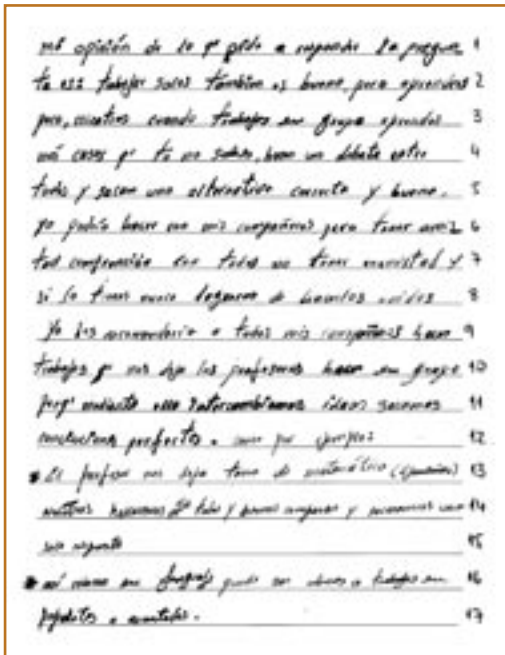 mi opinión de lo q' pide a responder la pregun 1
ta es: trabajar solos también es bueno, para aprender 2
pero, mientras cuando trabajas en grupo aprendes 3
más cosas q' tu no sabes, hacen un debate entre 4
todos y sacan una alternativa correcta y buena. 5
yo podría hacer con mis compañeros para tener amis 6
tad comprensión con todos no tener enemistad y 7
si lo tienes nunca dejemos de hacerlos unidos 8
Yo les recomendaría a todos mis compañeros hacer 9
trabajos q' nos deja los profesores hacer en grupo 10
porq' mediante ello intercambiamos ideas sacamos 11
conclusiones perfectas. como por ejemplo: 12
El profesor nos deja tarea de matemática (ejercicios) 13
nosotros hacemos todos y luego y sacamos una 14
sola respuesta 15
así mismo en lenguaje trabajos en 16
papelotes o 17